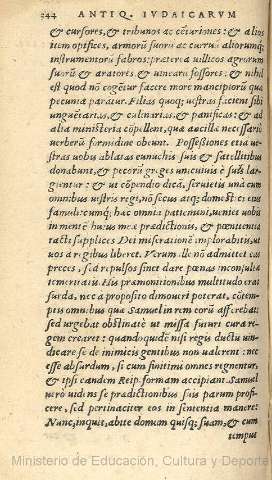 244 ANTIQ. IVDAICARVM
& cursores, & tribunos ac cẽturiones: & alios
item opifices, armorũ suorũ ac curruũ aliorumq;
instrumentorũ fabros: præterea uillicos agrorum
suorũ & aratores & uinearũ fossores: & nihil
est quod nõ cogẽtur facere more mancipiorũ qua
pecunia paratur. Filias quoq; uestras facient sibi
unguẽtarias, & culinarias, & panificas: & ad
alia ministeria cõpellent, quæ ancillæ necessariò
uerberũ formidine obeunt. Possessiones etiã ue-
stras uobis ablatas eunuchis suis & satellitibus
donabunt, & pecorũ greges unicuiuis è suis lar-
gientur: & ut cõpendio dicã, seruietis unà cum
omnibus uestris regi, nõ secius atq; domestici eius
famuli: cumq; hæc omnia patiemini, ueniet uobis
in mentẽ huius meæ prædictionis, & pœnitentia
tacti supplices Dei miserationẽ implorabitis, ut
uos à regibus liberet. Verùm ille nõ admittet eas
preces, sed repulsos sinet dare pœnas inconsultæ
temeritatis. His præmonitionibus multitudo erat
surda, nec à proposito dimoueri poterat, cõtem-
ptis omnibus quæ Samuel in rem eorũ afferebat:
sed urgebat obstinatè ut missa futuri cura re-
gem crearet: quandoquidẽ nisi regis ductu uin-
dicare se de inimicis gentibus non ualerent: nec
esse absurdum, si cum finitimi omnes regnentur,
& ipsi eandem Reip. formam accipiant. Samuel
uerò uidẽs se prædictionibus suis parum profi-
cere, sed pertinaciter eos in sententia manere:
Nunc, inquit, abite domum quisq; suam, & cum
tempus
Ministerio de Educación, Cultura y Deporte